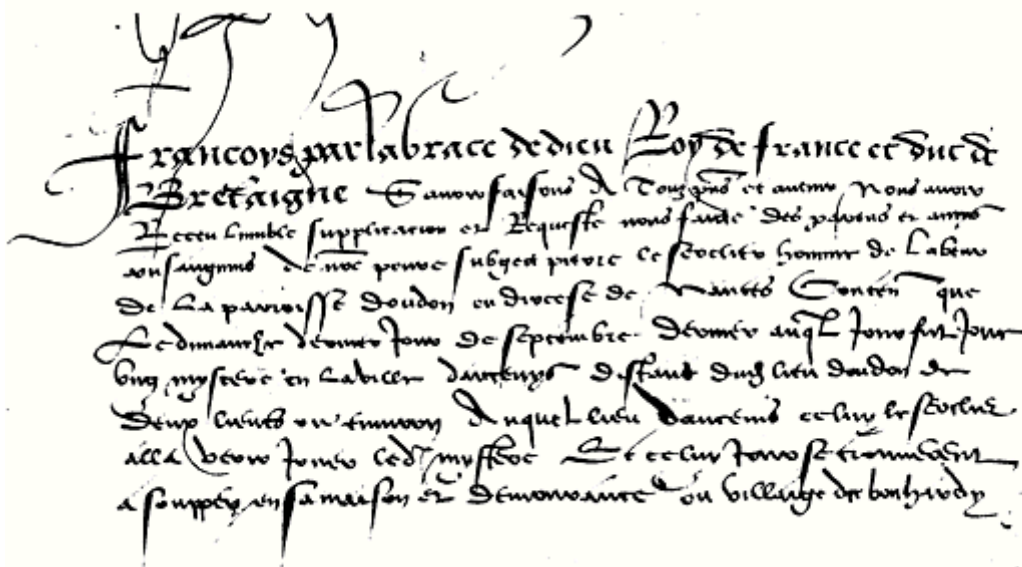 Francoys par la grace de dieu Roy de france et duc de
Bretaigne Savoir faisons A Tous pns et avenir Nous avoir
Receu lumble supplicacion et Requeste nous faicte des parens et amys
consanguins de nre povre subgect pierre le seveclier homme de labeur
de la parroisse doudon en diocese de Nantes Content que
Le dimanche dernier jour de septembre dernier auql jour fut joue
ung mystere en la ville dancenys distant dudt lieu doudon de
deux lieues ou environ Auquel lieu dancenis celuy le
alla veoir jouer led mystere Et celuy jour se trouverent
a soupper en sa maison et demourance ou villaige de bonhardy